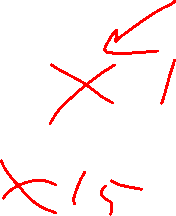 x 1
x 15